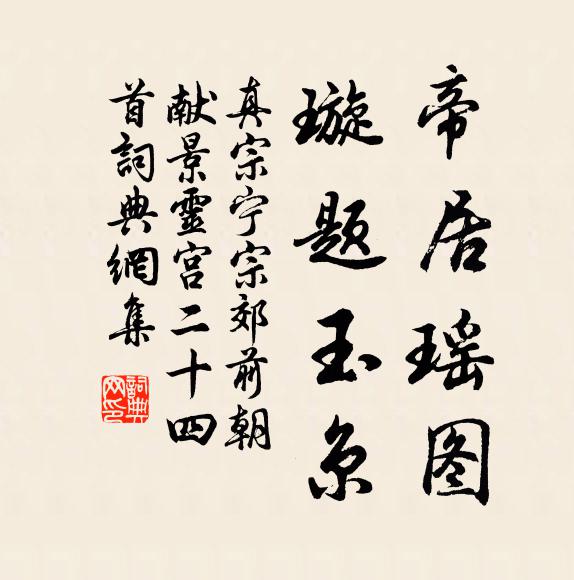 帝居瑶图
璇题玉京
真宗宁宗郊前朝
献景靈宫二十四
首詞典網集
詞典网印